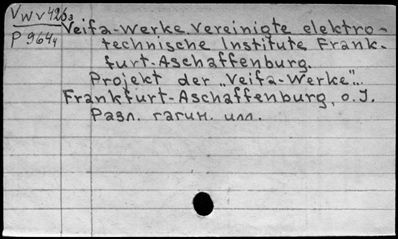 VWV 4263
P 9644
Veifa-Werke Vereinigte elektro-
technische Institute Frank-
furt-Aschaffenburg.
Projekt der „Veifa-Werke"..
Frankfurt-Aschaffenburg, o.J.
Разл. пагин. илл.